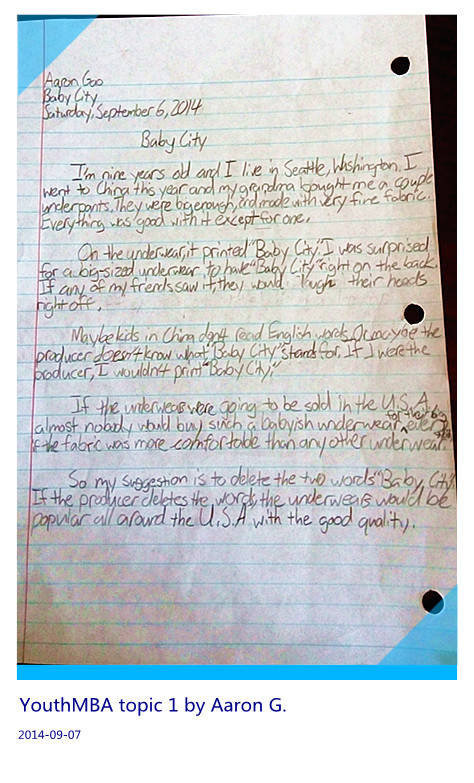 Aaron Goo
Baby City
Saturday, September 6, 2014
Baby City
I'm nine years old and I live in Seattle, Washington. I
went to China this year and my grandma bought me a couple
underpants. They were big enough, and made with very fine fabric.
Everything was good with it except for one.
On the underwear, it printed "Baby City." I was surprised
for a big-sized underwear to have "Baby City" right on the back.
If any of my friends saw it, they would laugh their heads
right off.
Maybe kids in China don't read English words. Or maybe the
producer doesn't know what "Baby City" stands for. If I were the
producer, I wouldn't print "Baby City."
If the underwears were going to be sold in the U.S.A,
almost nobody would buy such a babyish underwear for their big even
if the fabric was more comfortable than any other underwear.
So my suggestion is to delete the two words "Baby City."
If the producer deletes the words, the underwears would be
popular all around the U.S.A with the good quality.
YouthMBA topic 1 by Aaron G.
2014-09-07